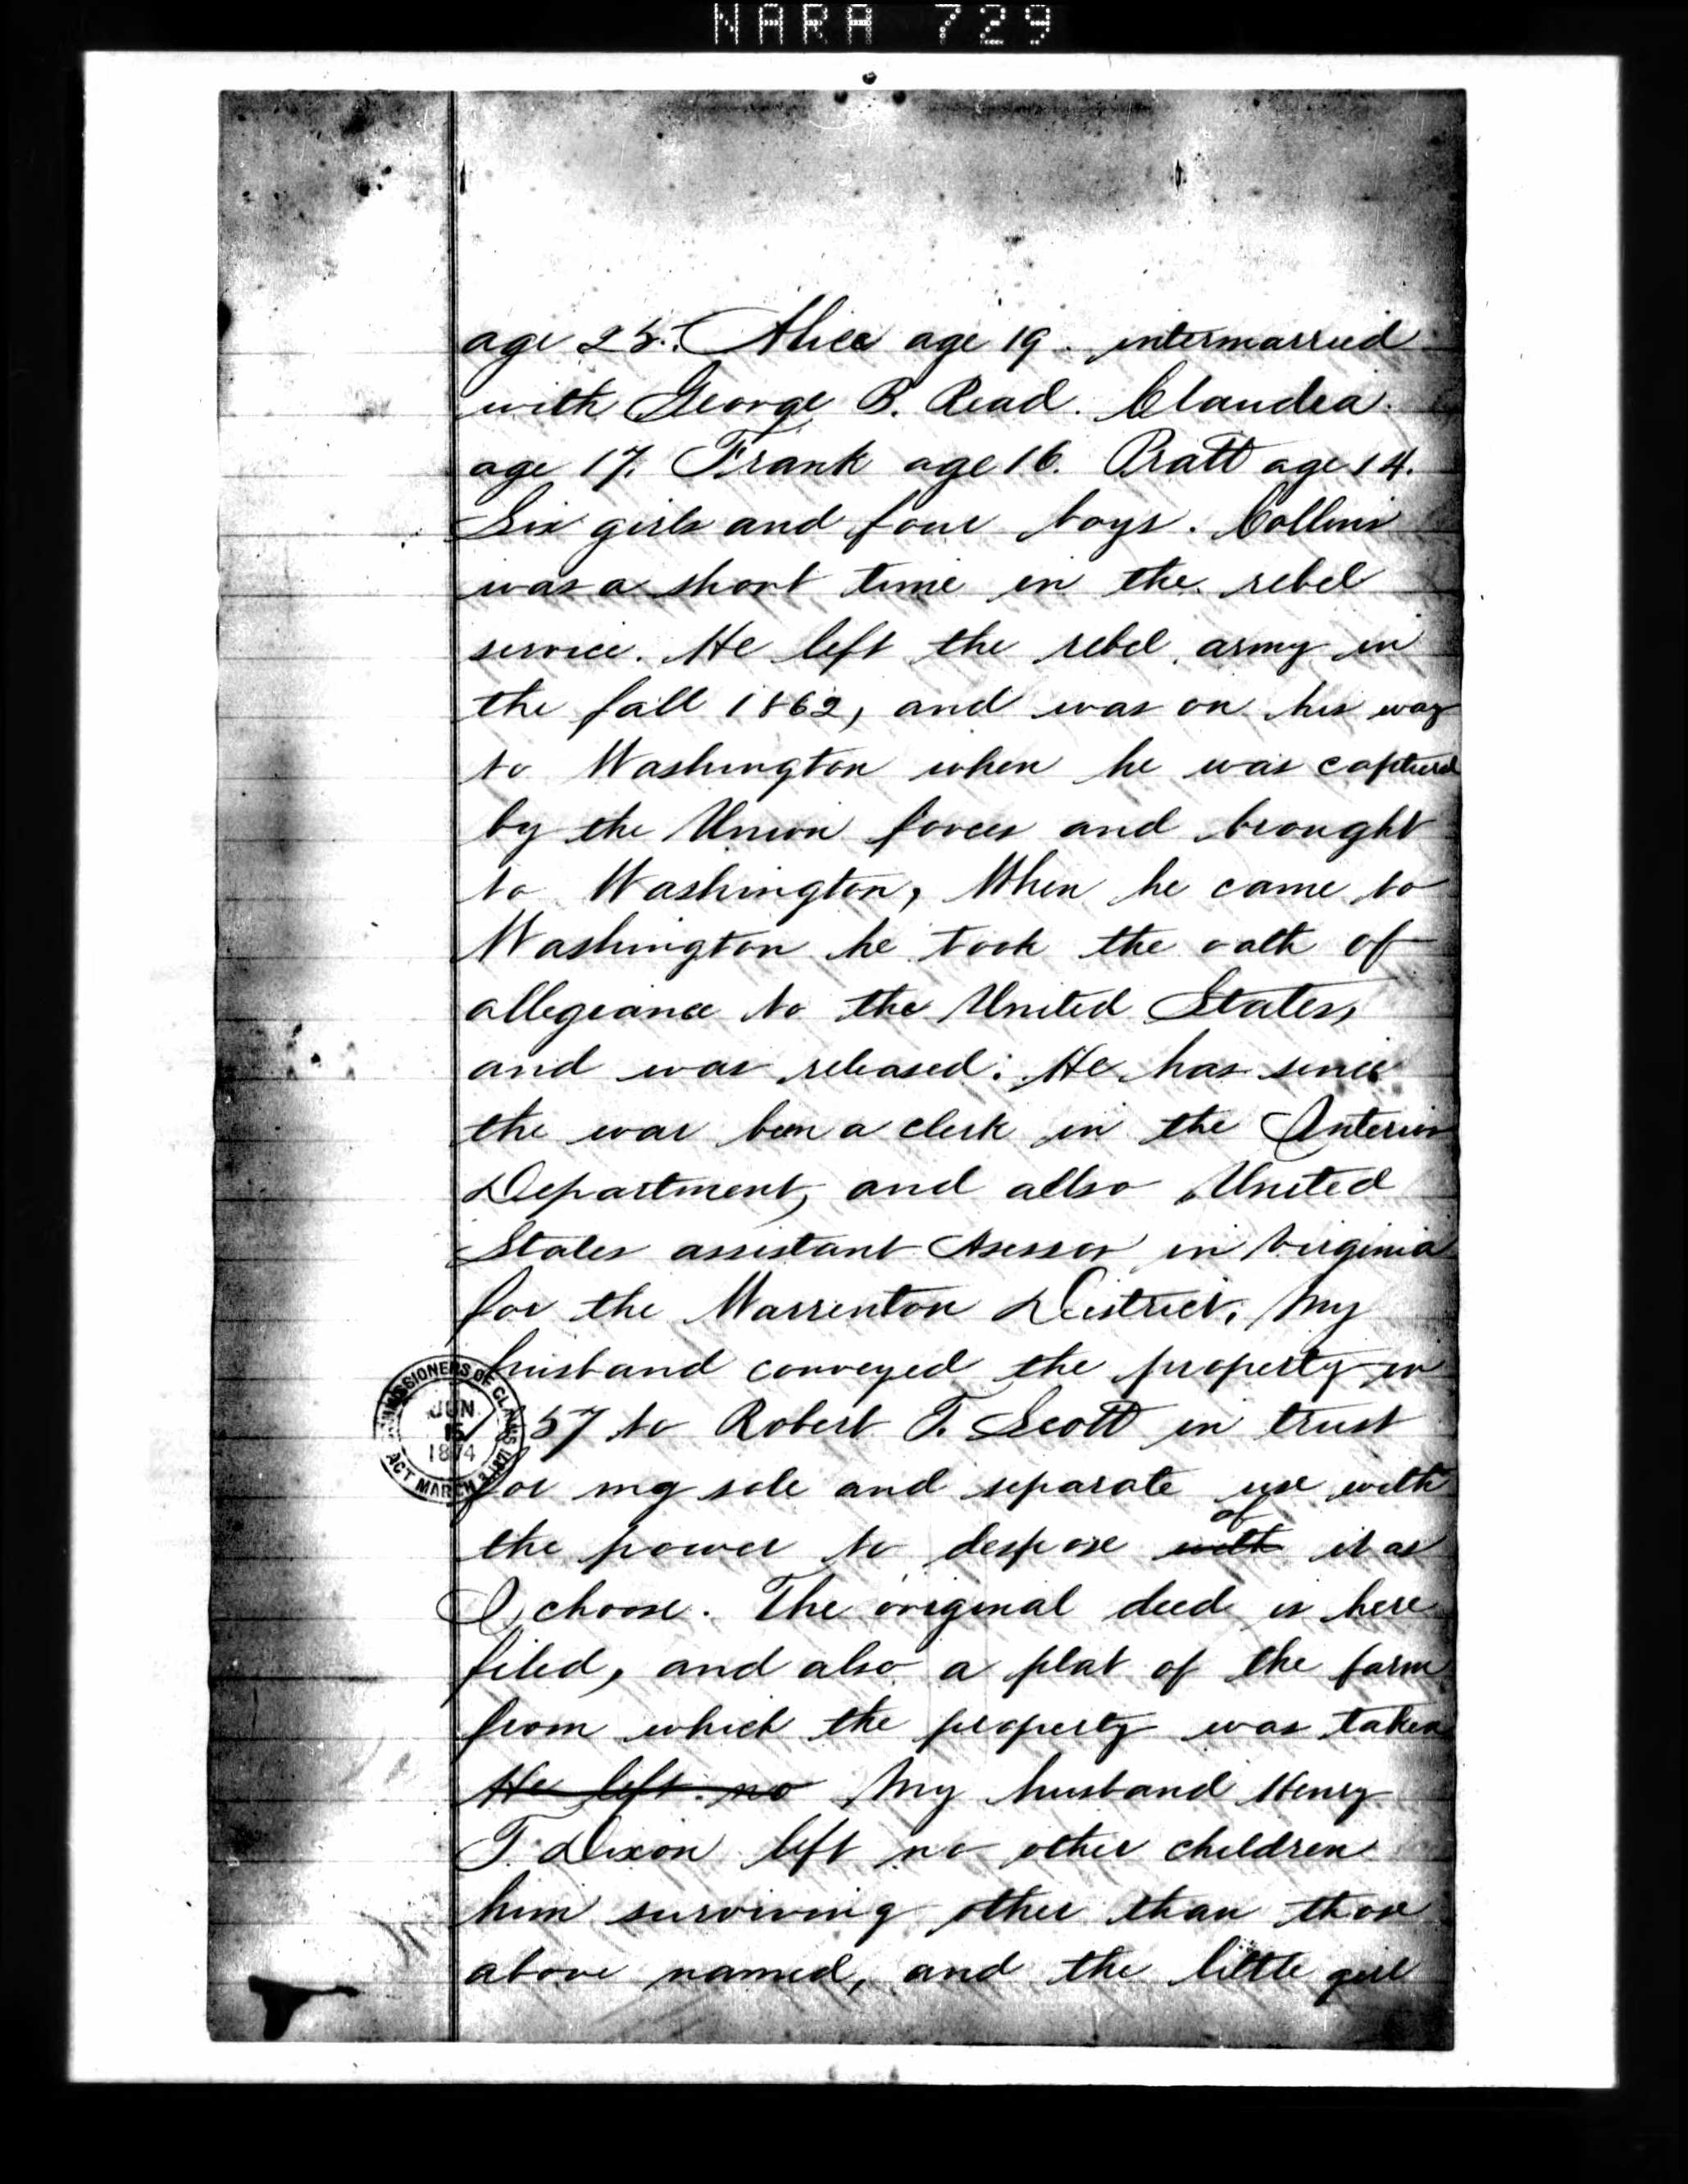 NARA 729
age 25. Alice age 19. intermarried
with George B. Read. Claudia.
age 17. Frank age 16. Pratt age 14.
Six girls and four boys. Collins
was a short time in the rebel
service. He left the rebel army in
the fall 1862, and was on his way
to Washington when he was captured
by the Union forces and brought
to Washington, When he came to
Washington he took the oath of
allegiance to the United States,
and was released. He has since
the war been a clerk in the Interior
Department, and allso United
States assistant Assessor in Virginia
for the Warrenton District. My
husband conveyed the property in
57 to Robert T. Scott in trust
for my sole and separate use with
the power to despose with of it as
I choose. The original deed is here
filed, and also a plat of the farm
from which the property was taken
He left no My husband Henry
T. Dixon left no other children
him surviving other than those
above named, and the little girl
COMMISSIONERS OF CLAIMS
JUN
15
1874
ACT MARCH 3, 1871